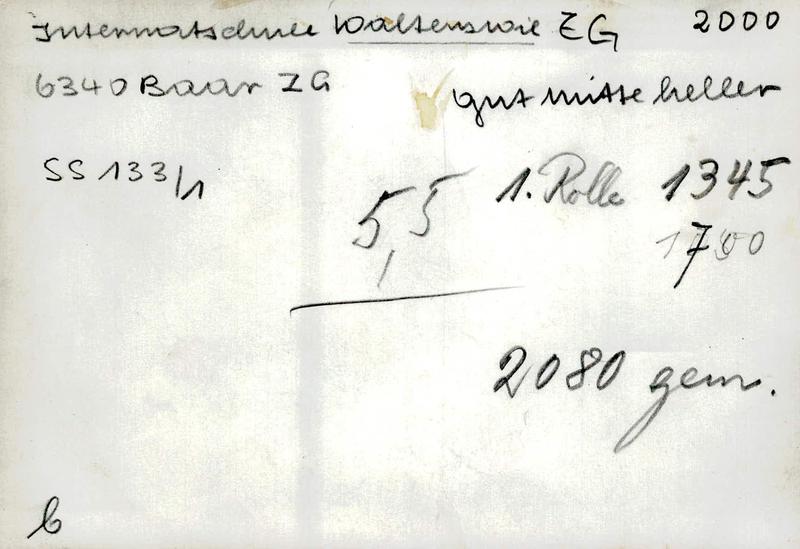 Internatschule Walterswil ZG 2000
6340 Baar ZG
gut mitte heller
SS 133/1
1. Rolle 1345
5,5
2080 gem.
b